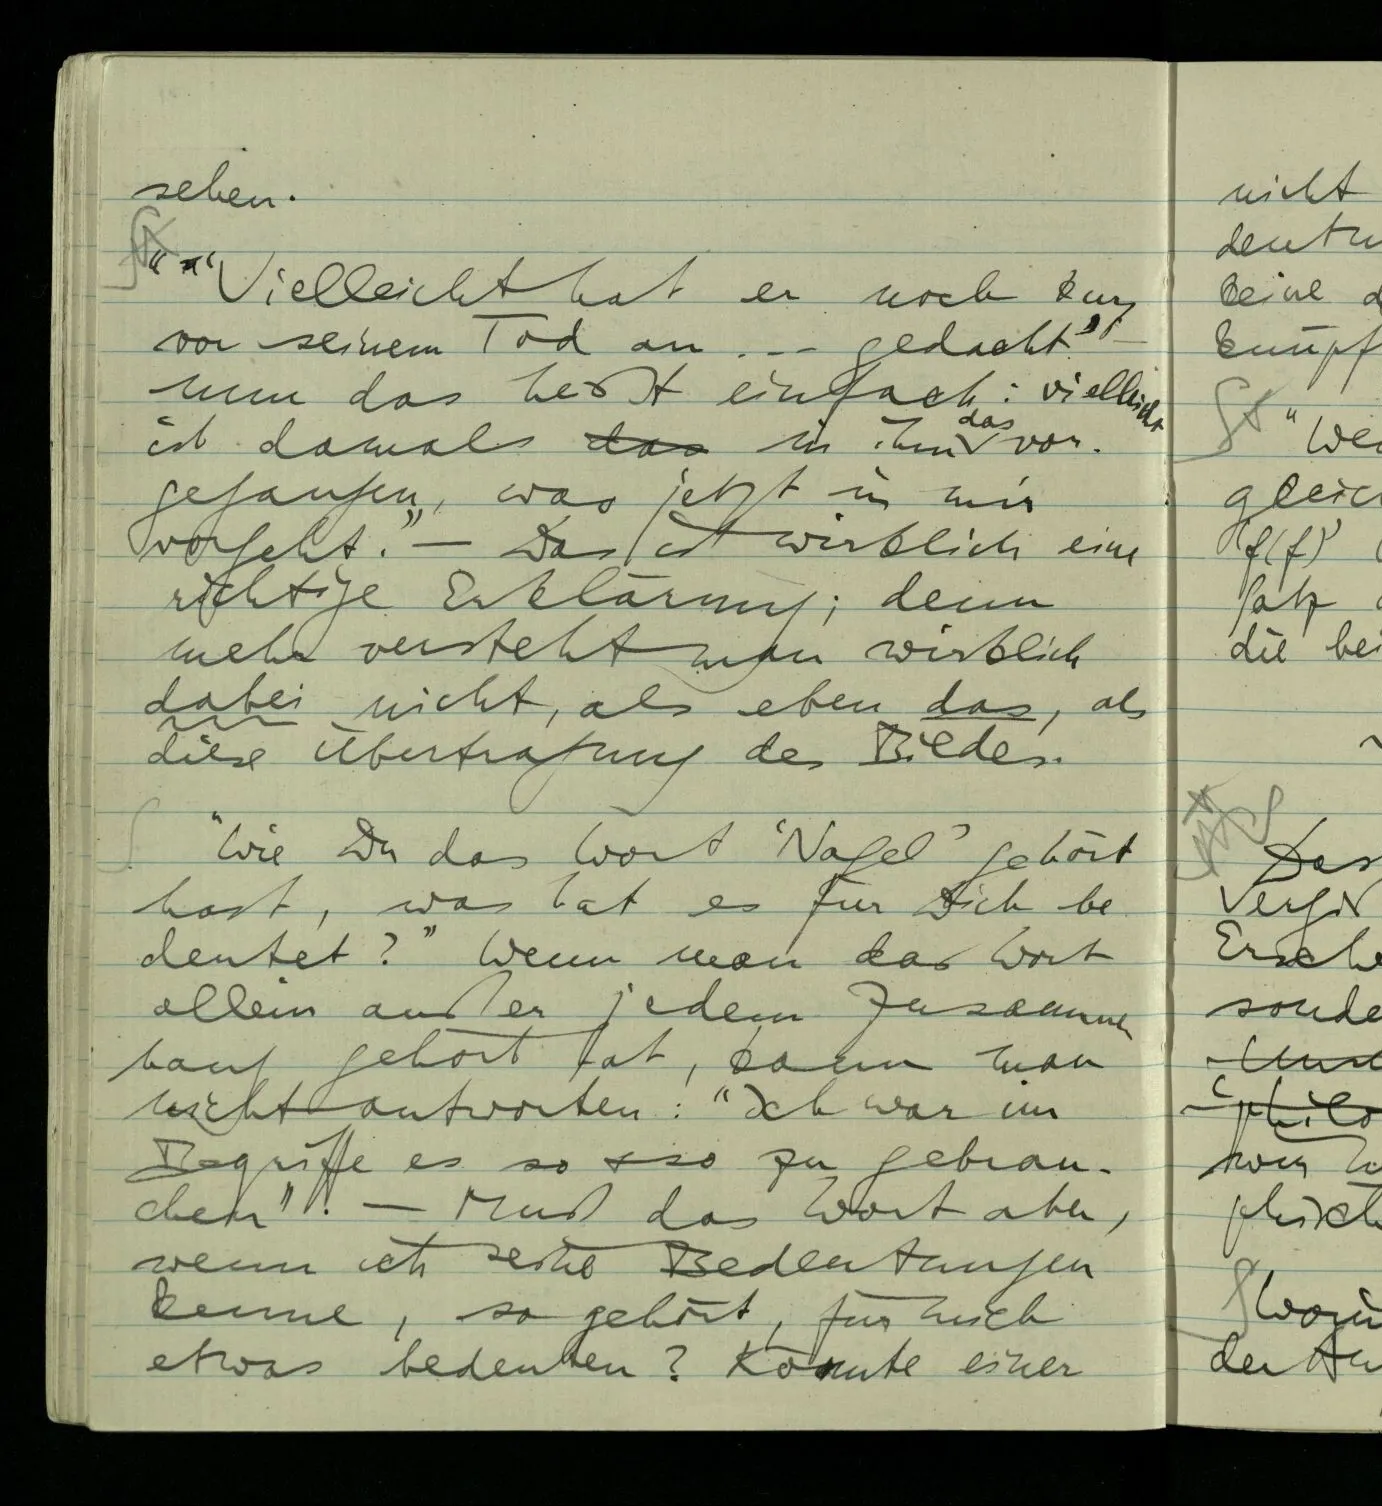 sehen.
""Vielleicht hat er noch kurz
vor seinem Tod an ... gedacht" –
nun das heißt einfach: vielleicht
ist damals das in ihm das vor-
gegangen, was jetzt in mir
vorgeht." – Das ist wirklich eine
richtige Erklärung; denn
mehr versteht man wirklich
dabei nicht, als eben das, als
diese Übertragung des Bildes.
"Wie Du das Wort 'Nagel' gehört
hast, was hat es für Dich be
deutet?" Wenn man das Wort
allein außer jedem Zusammen
hang gehört hat, kann man
nicht antworten: "Ich war im
Begriffe es so & so zu gebrau-
chen". – Muß das Wort aber,
wenn ich seine Bedeutungen
kenne, so gehört, für mich
etwas bedeuten? Könnte einer
nicht
deutu
keine d
knüpf
"We
gleic
'f(f)'
Satz
die bei
Das
Vergiß
Ersche
sonde
philo
wir
phisch
Worin
der